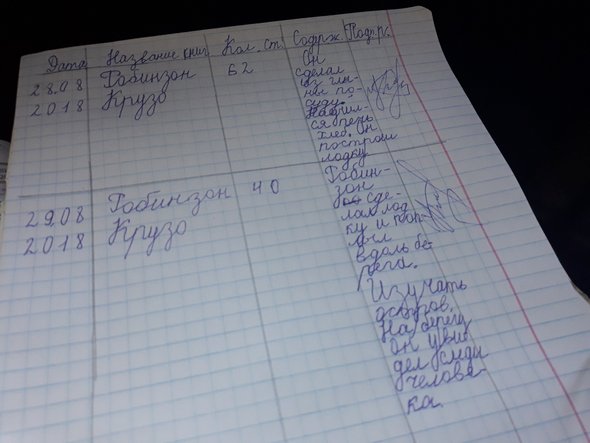 Дата Название книг Кол. ст. Содерж. Подпис.
28.08 2018
Робинзон Крузо
62
Он
сделал
из гли-
ны по-
суду.
Научил-
ся печь
хлеб. Он
построил
лодку
29.08 2018
Робинзон Крузо
40
Робин-
зон
сде-
лал лод-
ку и поп-
лыл
вдоль бе-
рега.
Изучать
остров.
На берегу
он уви-
дел следы
челове-
ка.